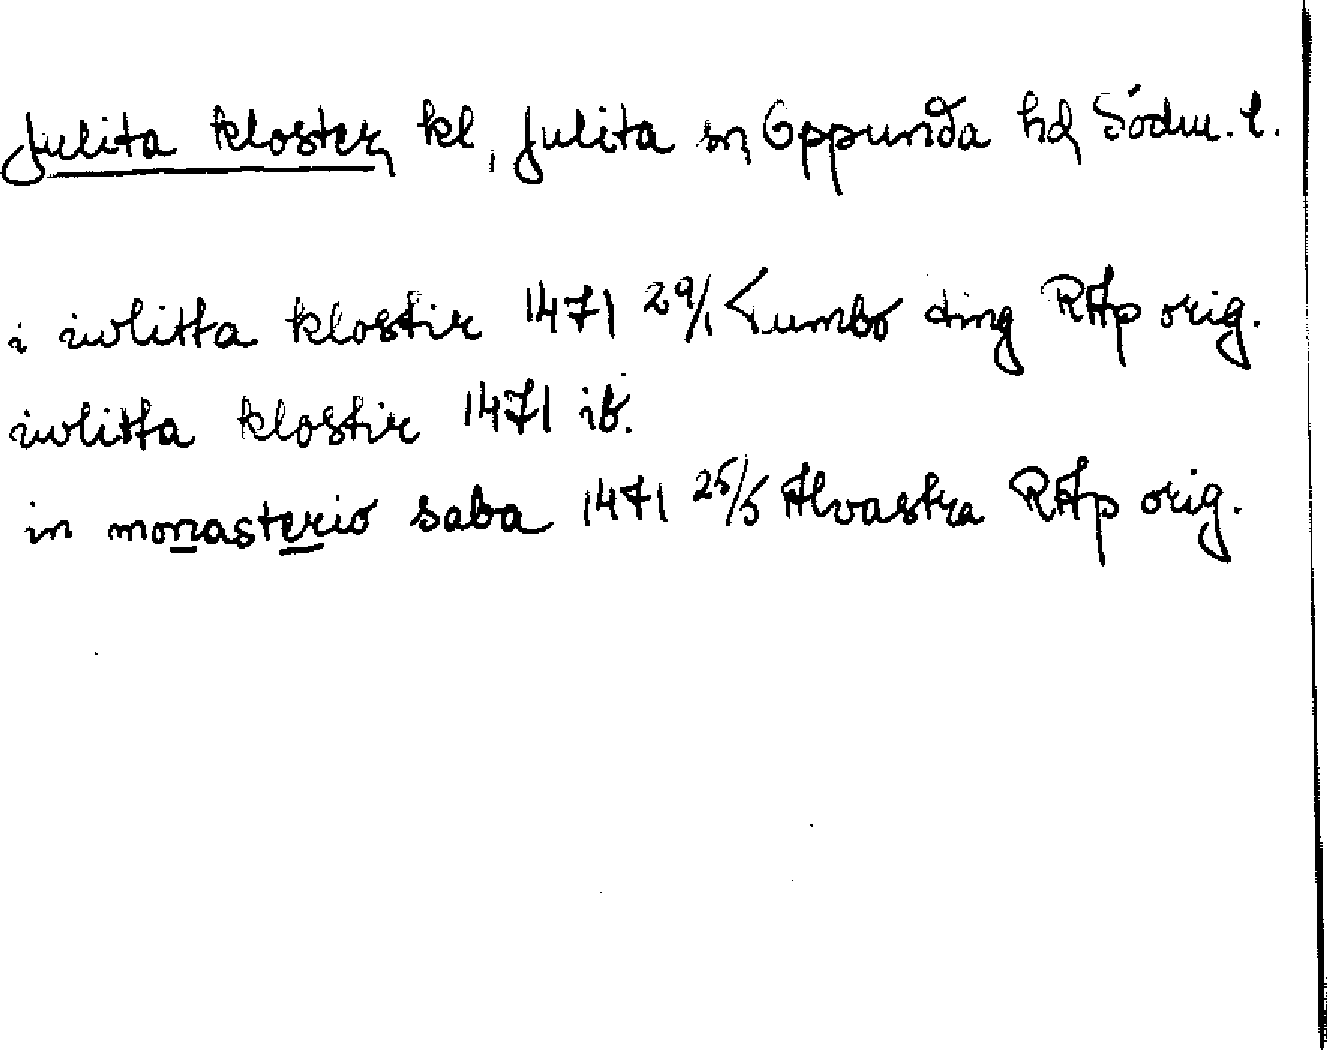 Julita kloster, kl, Julita sn, Oppunda hd, Södm. l.
i iulitta klostir 1471 29/1 Lumbo ting RAp orig.
iulitta klostir 1471 ib.
in monasterio saba 1471 25/5 Alvastra RAp orig.